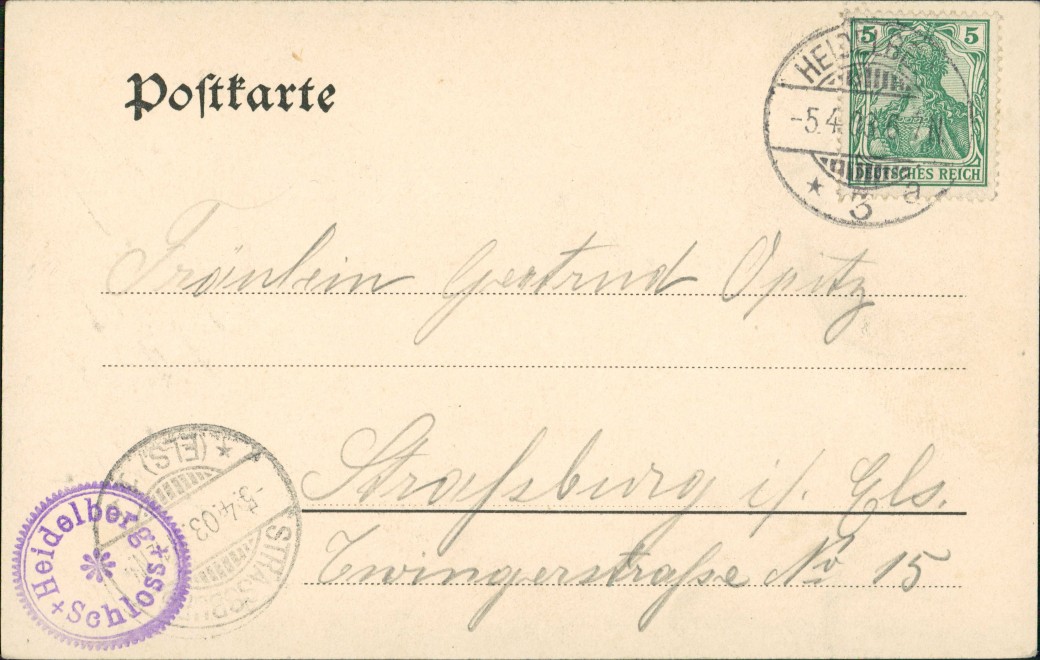 Poſtkarte
5 5
DEUTSCHES REICH
HEIDELBE
-5.4.03.6-N
* 3 a
Fräulein Gertrud Opitz
Straſsburg i/ Els.
Zwingerstraſse No 15
STRASSBU
(ELS)
.4.03.
Heidelberg + Schloss +